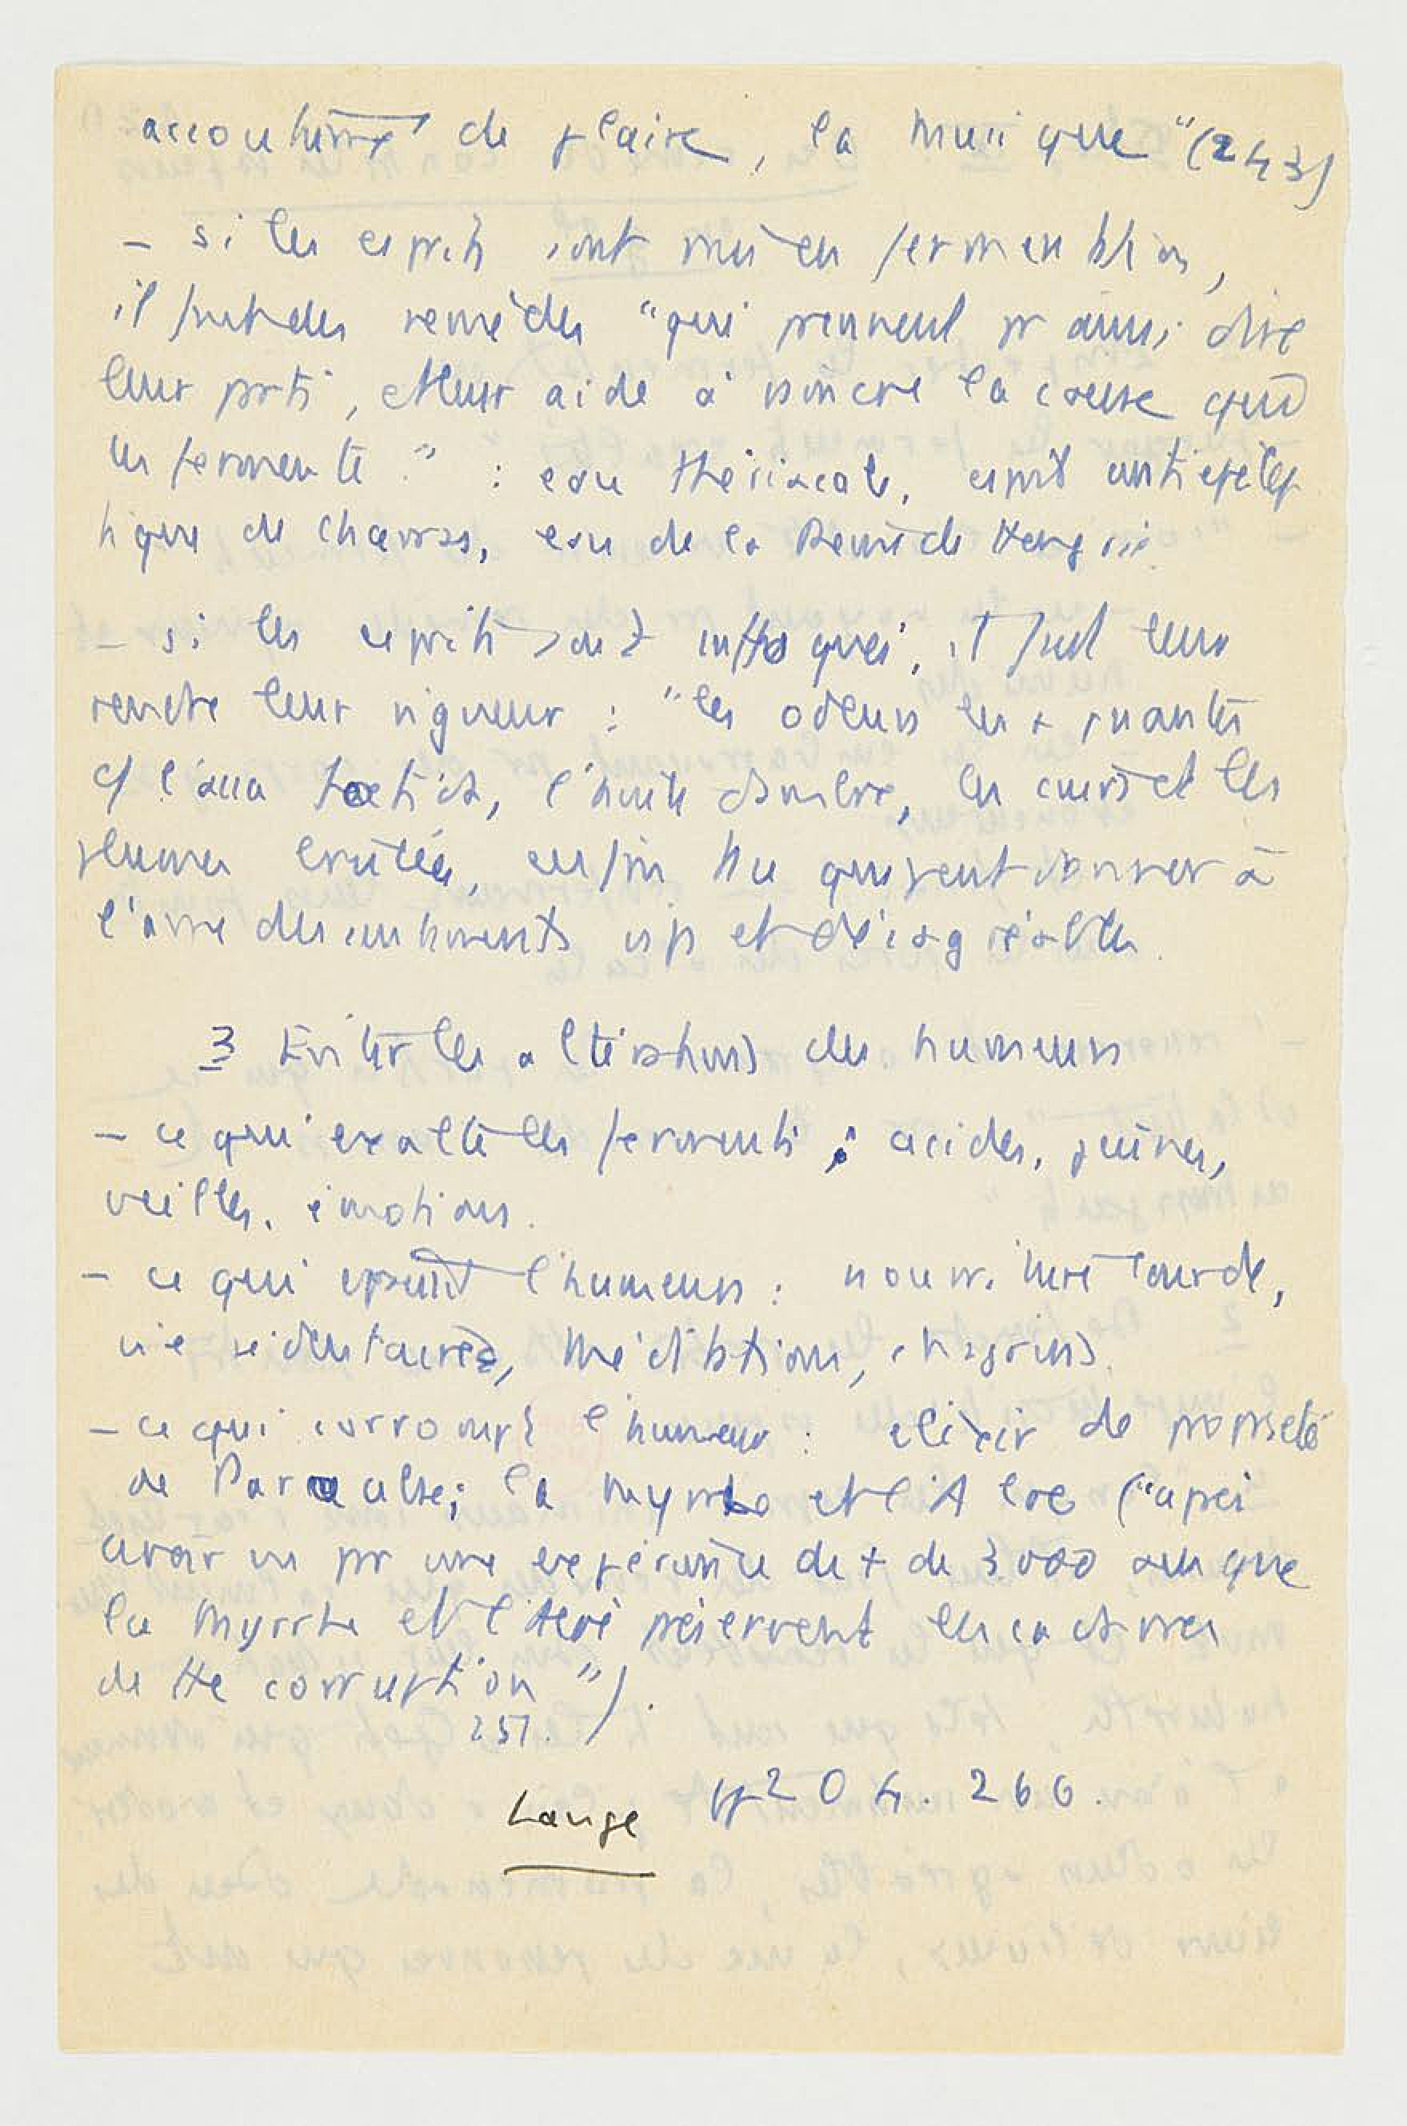 accoutumé de plaire, la musique" (243)
– si les esprits sont mis en fermentation,
il faut des remèdes "qui prennent pr ainsi dire
leur parti, et leur aide à vaincre la cause qui
les fermente" : eau thériacale, esprit antiépilep
tique de Charras, eau de la Reine de Hongrie.
– si les esprits sont suffoqués, il faut leur
rendre leur vigueur : "les odeurs les + puantes
cf l'assa foetida, l'huile d'ambre, les cuirs et les
plumes brûlés, enfin tt ce qui peut donner à
l'âme des sentiments vifs et désagréables.
3 Eviter les altérations des humeurs
– ce qui exalte les ferments : acides, épices,
veilles, émotions.
– ce qui épaissit l'humeurs : nourriture lourde,
vie sédentaire, méditations, chagrins.
– ce qui corrompt l'humeur : elixir de propriété
de Paracelse ; la myrrhe et l'Aloe ("après
avoir vu pr une expérience de + de 3000 ans que
la Myrrhe et l'Aloè préservent les cadavres
de tte corruption").
251.)
Lange pp 204. 266.